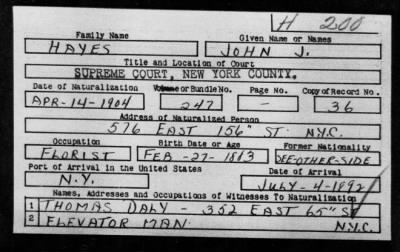 H 200
Family Name Given Name or Names
HAYES JOHN J.
Title and Location of Court
SUPREME COURT, NEW YORK COUNTY.
Date of Naturalization Volume or Bundle No. Page No. Copy of Record No.
APR-14-1904 247 - 36
Address of Naturalized Person
576 EAST 156" ST. N.Y.C.
Occupation Birth Date or Age Former Nationality
FLORIST FEB-27-1863 SEE-OTHER-SIDE
Port of Arrival in the United States Date of Arrival
N.Y. JULY-4-1892
Names, Addresses and Occupations of Witnesses To Naturalization
1 THOMAS DALY - 352 EAST 65" ST
2 ELEVATOR MAN. N.Y.C.